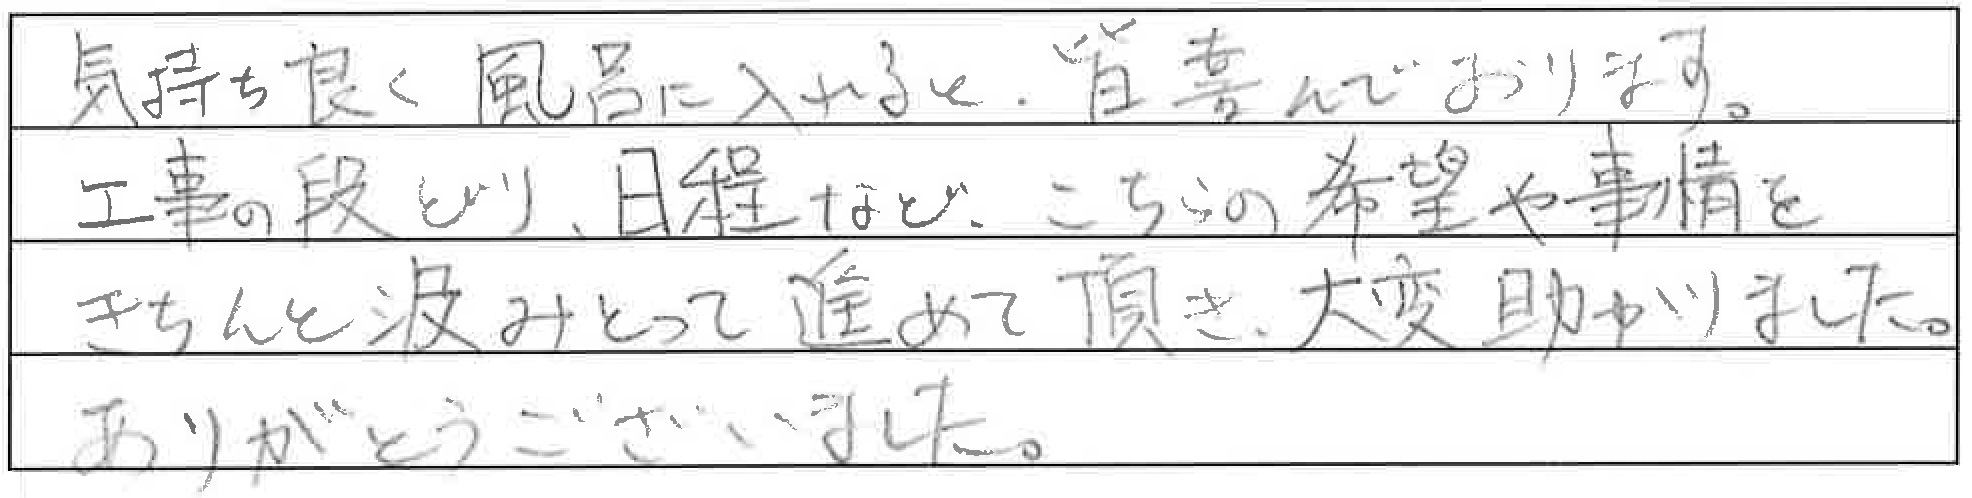 気持ち良く風呂に入れると、皆喜んでおります。
工事の段どり、日程など、こちらの希望や事情を
きちんと汲みとって進めて頂き、大変助かりました。
ありがとうございました。